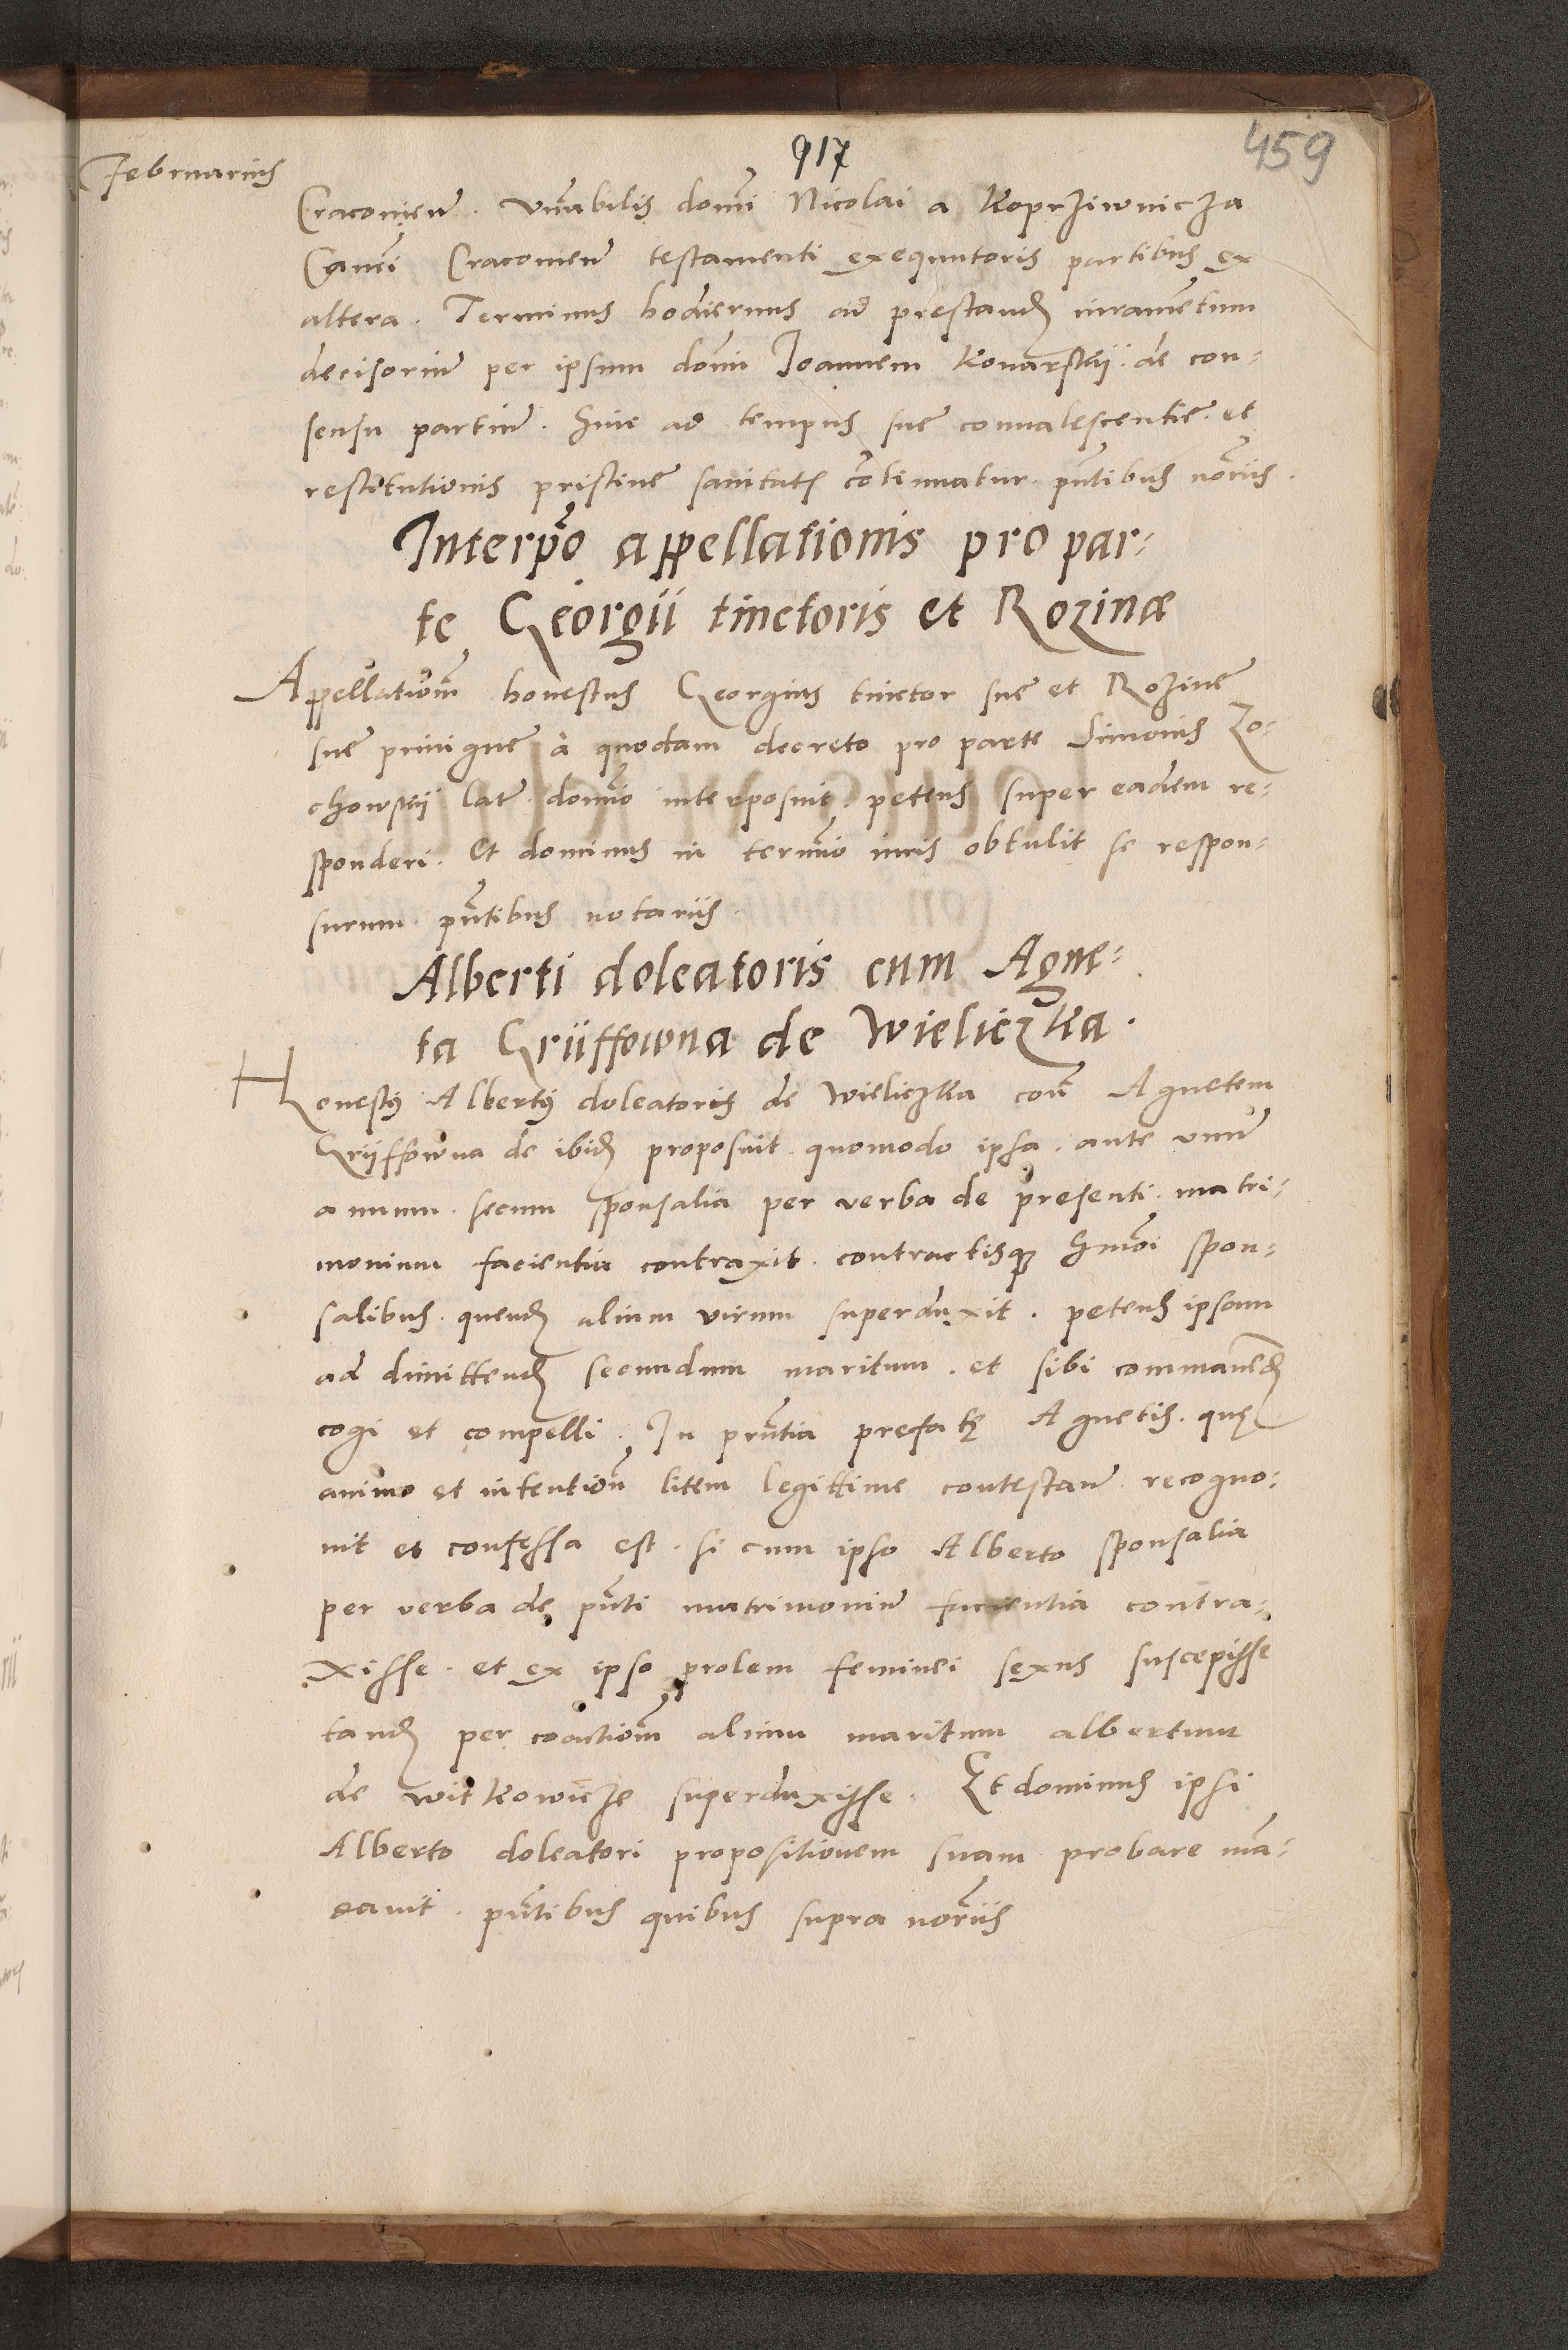 917
459
Februarius
Craconien̄. Vn̄abilis domī Nicolai a Koprziwnicza
Canci Craconien̄ testamenti exequutoris partibus ex
altera. Terminus hodiernus ad prestand iuramētum
decisoriū per ipsum domī Joannem Konarskij. de con-
sensu partiū. Hinc ad tempus sue conualescentie. et
restitutionis pristine sanitatꝭ cōtinuatur. pn̄tibus norīis.
Interpō appellationis pro par-
te Georgii tinctoris et Rozinæ
Appellationē honestus Georgius tinctor sue et Rozine
sue priuigne à quodam decreto pro parte Simonis Zo-
chowskij lat̄. domīo interposuit. petens super eadem re-
sponderi. Et dominus in termīo iuris obtulit se respon-
surum. pn̄tibus notariis.
Alberti doleatoris cum Agne-
ta Griiffowna de Wieliczka.
Honestꝰ Albertꝰ doleatoris de Wieliczka con̄ Agnetem
Griiffowna de ibid proposuit. quomodo ipsa. ante vnū
annum. secum sponsalia per verba de presenti. matri-
monium facientia contraxit. contractisqꝫ hmōi spon-
salibus. quend alium virum superduxit. petens ipsam
ad dimittend secundum maritum. et sibi commanēd
cogi et compelli. In prn̄tia prefatę Agnetis. quę
animo et intentionē litem legittime contestan̄ recogno-
uit et confessa est. si cum ipso Alberto sponsalia
per verba de pn̄ti matrimoniū facientia contra-
xisse. et ex ipso prolem feminei sexus suscepisse
tand per coactionē alium maritum albertum
de witkowicze superduxisse. Et dominus ipsi
Alberto doleatori propositionem suam probare mā-
dauit. pn̄tibus quibus supra norīis